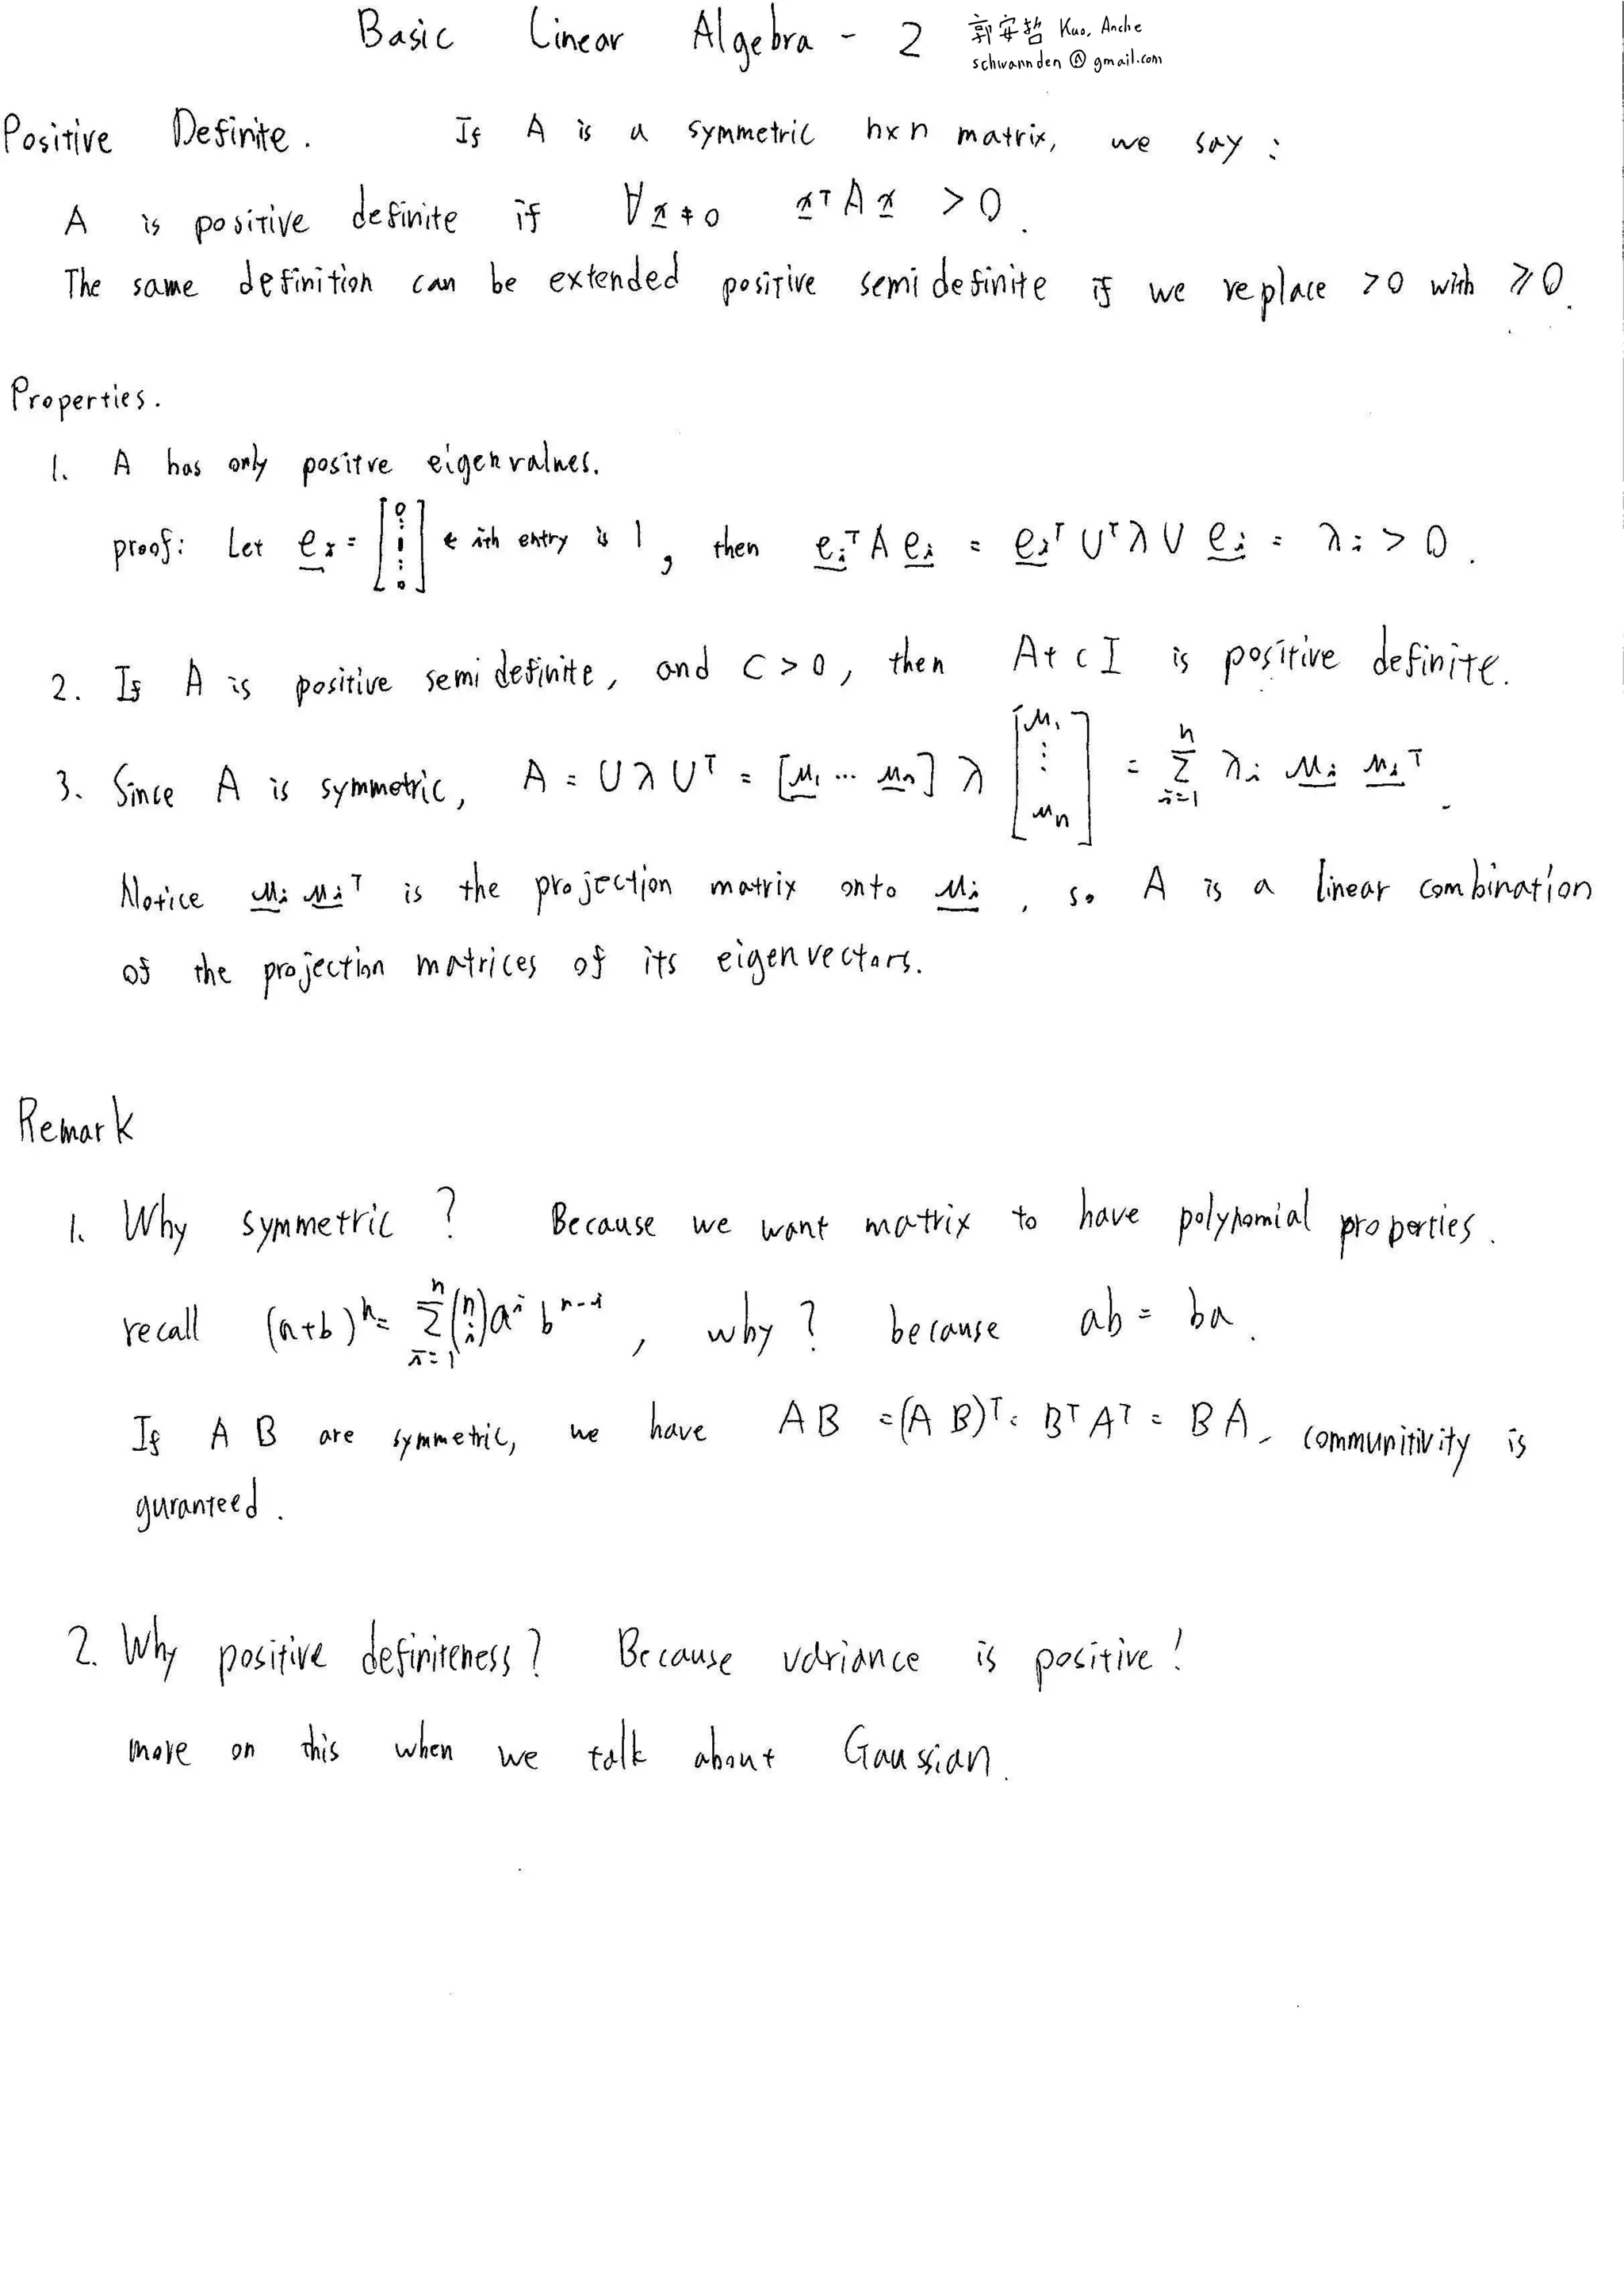 Basic Linear Algebra - 2 郭安哲 Kuo, Anche
schwannden@gmail.com
Positive Definite. If A is a symmetric n×n matrix, we say :
A is positive definite if ∀x≠0 xᵀAx >0.
The same definition can be extended positive semidefinite if we replace >0 with ≥0.
Properties.
1. A has only positve eigenvalues.
proof: Let eᵢ = [0 ⋮ 1 ⋮ 0] ← ith entry is 1, then eᵢᵀAeᵢ = eᵢᵀUᵀλUeᵢ = λᵢ > 0.
2. If A is positive semidefinite, and c>0, then A+cI is positive definite.
3. Since A is symmetric, A = UλUᵀ = [u₁ ... uₙ] λ [u₁ ⋮ uₙ] = Σⁿᵢ₌₁ λᵢ uᵢ uᵢᵀ.
Notice uᵢ uᵢᵀ is the projection matrix onto uᵢ, so A is a linear combination
of the projection matrices of its eigenvectors.
Remark
1. Why symmetric? Because we want matrix to have polynomial properties.
recall (a+b)ⁿ = Σⁿᵢ₌₁ (n i) aⁱ bⁿ⁻ⁱ, why? because ab = ba.
If A B are symmetric, we have AB = (AB)ᵀ = BᵀAᵀ = BA, communitivity is
guranteed.
2. Why positive definiteness? Because variance is positive!
more on this when we talk about Gaussian.